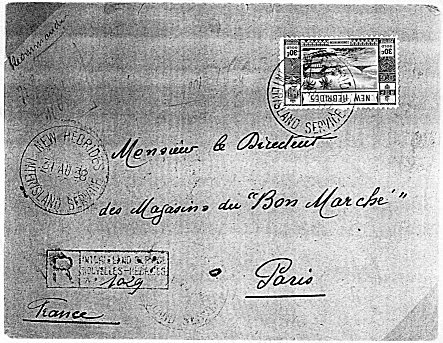 Recommandé
30c GOLD
30c GOLD
CONDOMINIUM
NEW HEBRIDES
NEW HEBRIDES
INTERISLAND SERVICE
NEW HEBRIDES
21 AU 39
INTERISLAND SERVICE
Monsieur le Directeur
des Magasins du "Bon Marché"
Paris
France
R
INTERISLAND SERVICE
NOUVELLES-HEBRIDES
1029